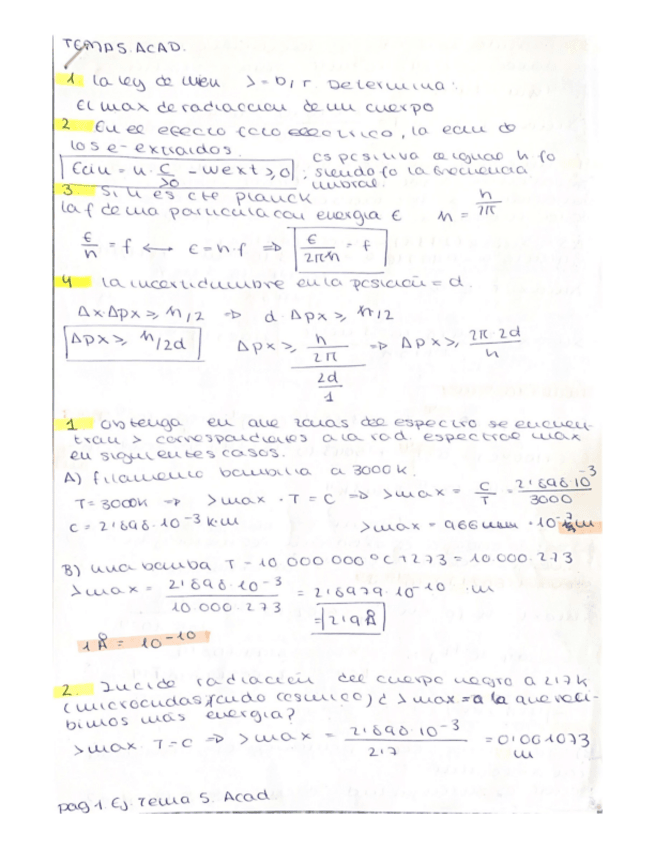 TEMA 5. ACAD.
1 La ley de Wien λ = b/T. Determina:
El max de radiaccion de un cuerpo
2 En el efecto fotoelectrico, la ecin de
los e- extraidos.
Ecin = h · c/λ0 - Wext ≥ 0 ; es positiva o igual h fo
siendo fo la frecuencia
umbral.
3. Si h es cte planck
la f de una particula con energia E ħ = h/2π
E/h = f ⟷ E = h·f ⇒ E/2πħ = f
4 la incertidumbre en la posición = d.
Δx·Δpx ≥ ħ/2 ⇒ d·Δpx ≥ ħ/2
Δpx ≥ ħ/2d Δpx ≥ h/2π / 2d/1 ⇒ Δpx ≥ 2π·2d/h
1 Obtenga en que zonas del espectro se encuen-
tran λ correspondientes a la rad. espectral max
en siguientes casos.
A) Filamento bombilla a 3000K.
T = 3000K ⇒ λmax · T = C ⇒ λmax = C/T = 2'898·10^-3/3000
C = 2'898·10^-3 K·m λmax = 966 · 10 m
B) una bomba T = 10 000 000 ºC + 273 = 10.000.273
λmax = 2'898·10^-3/10.000.273 = 2'8979·10^-10 · m
= 2'9 Å
1 Å = 10^-10
2. Incide radiación del cuerpo negro a 2'7 K
(microondas, fondo cosmico) ¿ λmax = a la que reci-
bimos más energia?
λmax · T = C ⇒ λmax = 2'898·10^-3/2'7 = 0'001073
m
pag 1 Ej. Tema 5. Acad